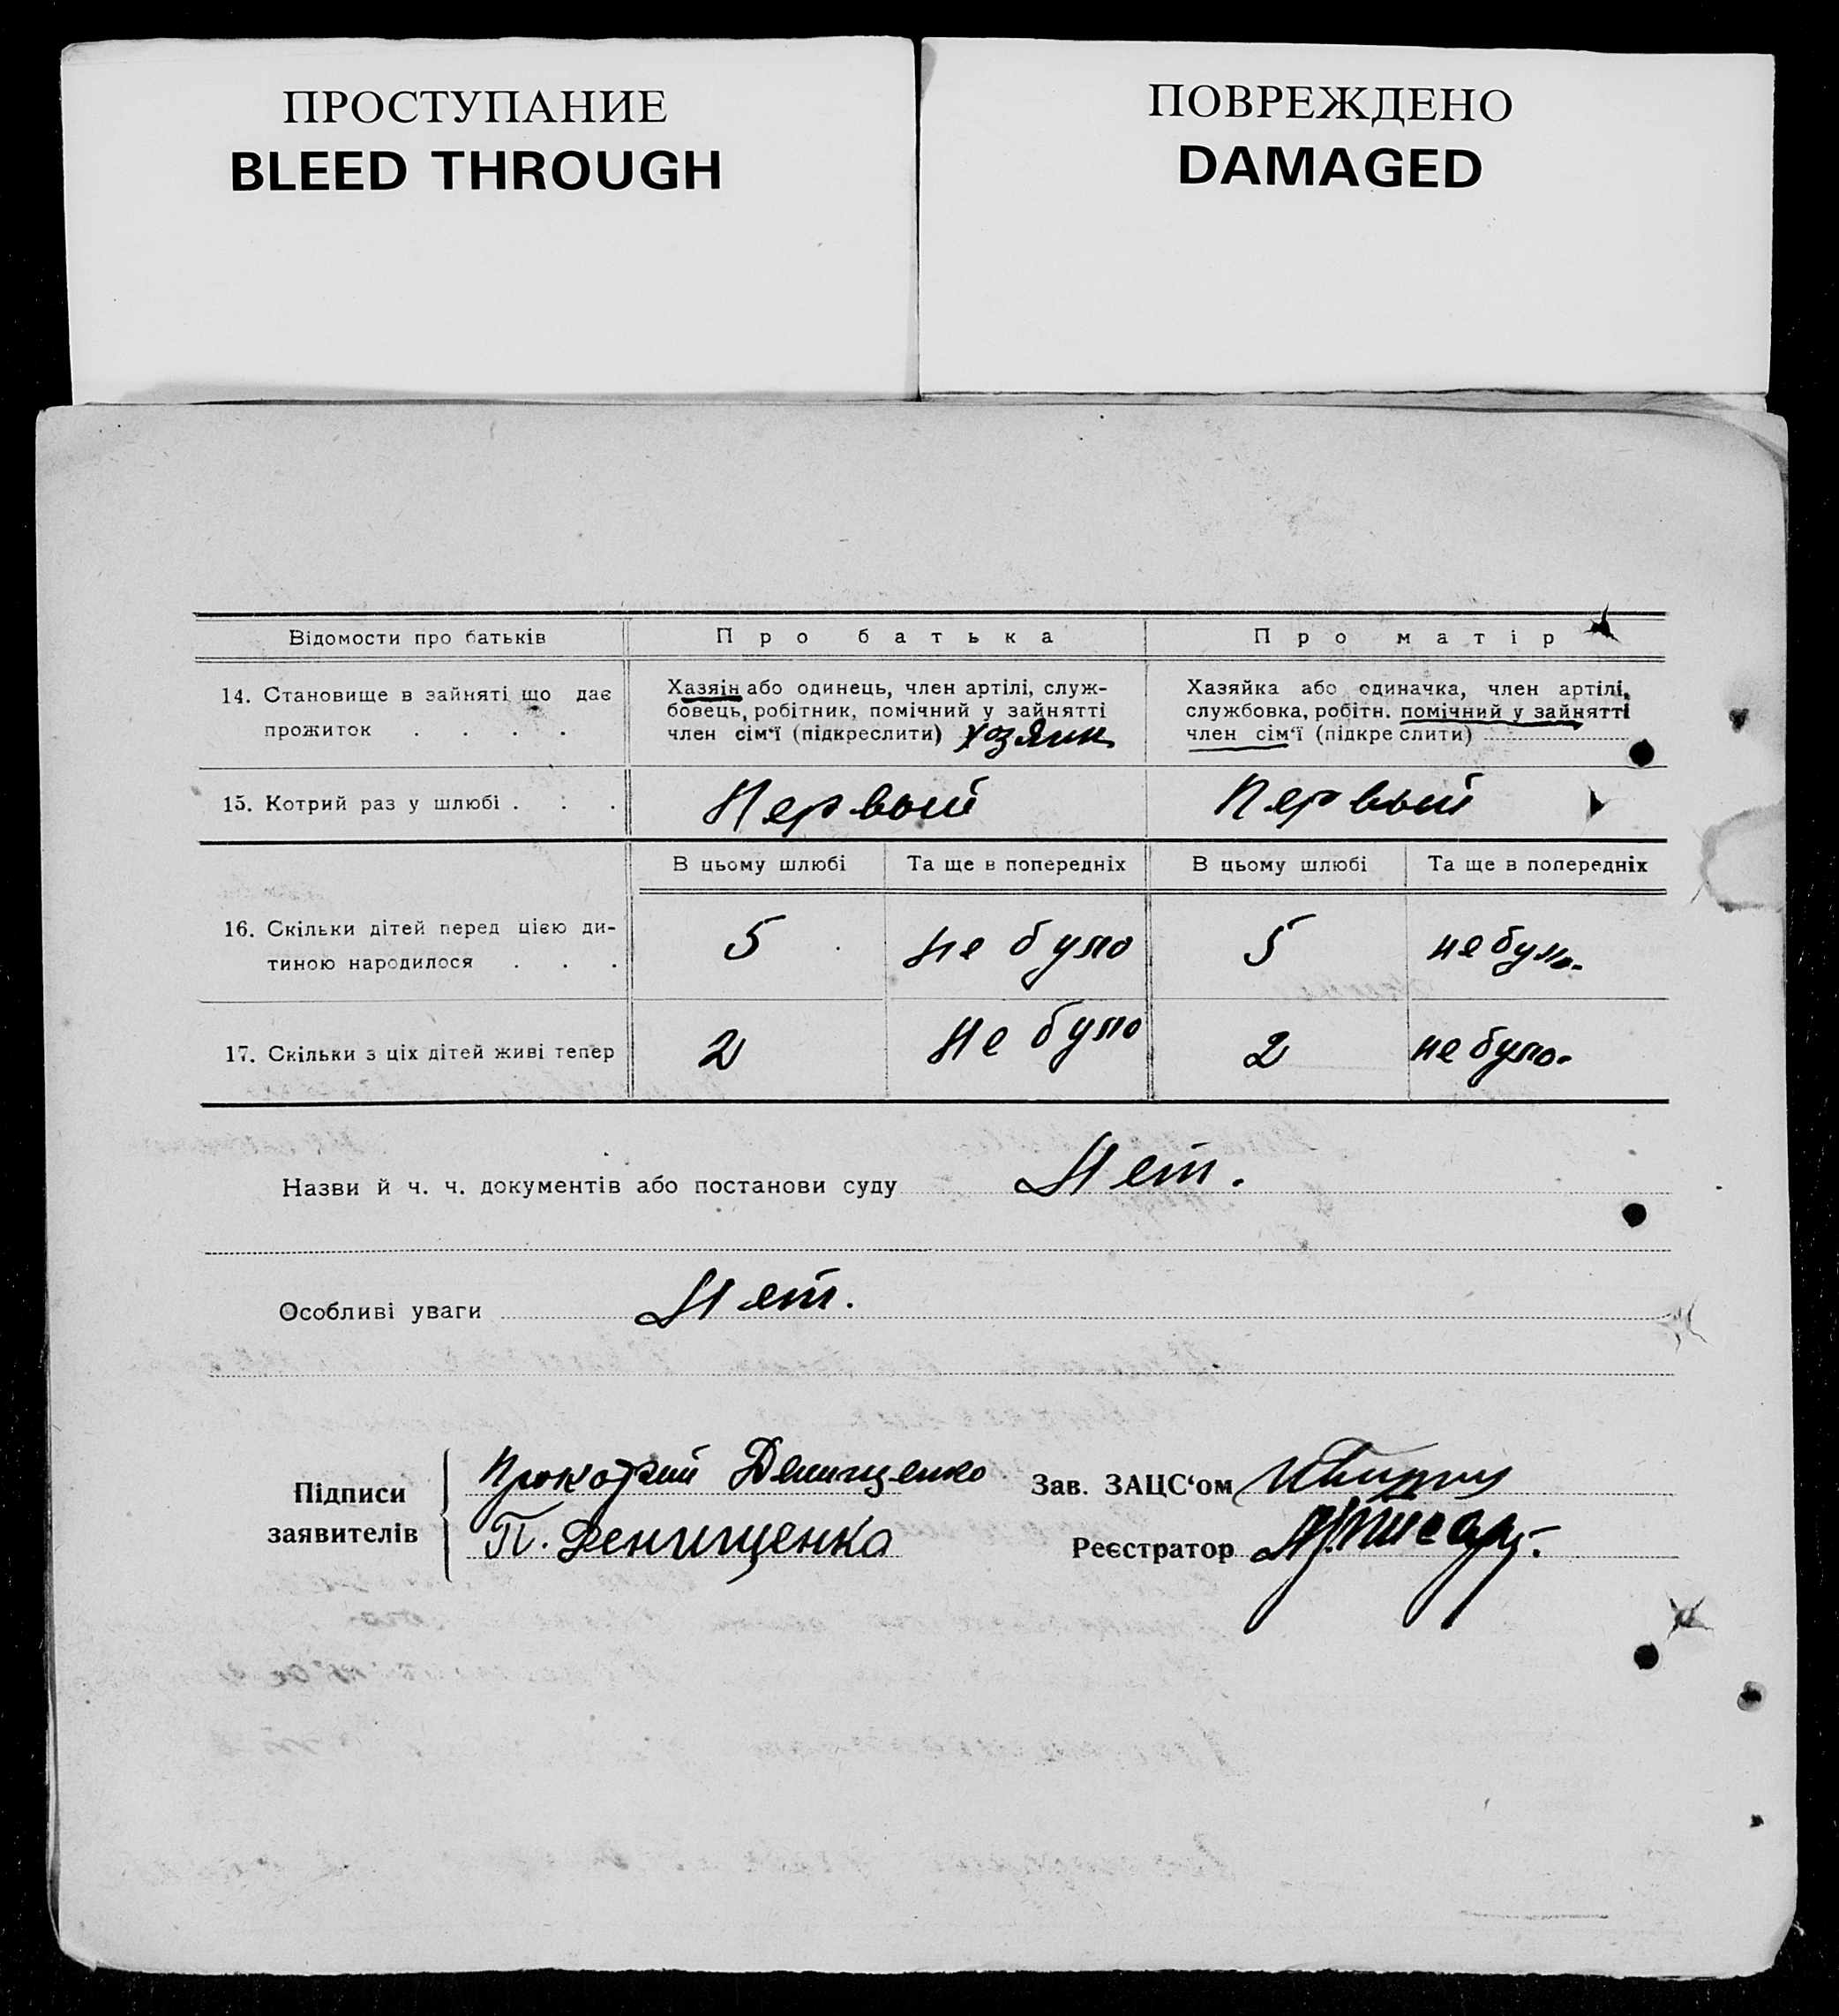 ПРОСТУПАНИЕ
BLEED THROUGH
ПОВРЕЖДЕНО
DAMAGED
Відомости про батьків
Про батька
Про матір
14. Становище в зайняті що дає
прожиток . . . .
Хазяїн або одинець, член артілі, служ-
бовець, робітник, помічний у зайнятті
член сім'ї (підкреслити) хозяин
Хазяйка або одиначка, член артілі,
службовка, робітн. помічний у зайнятті
член сім'ї (підкреслити)
15. Котрий раз у шлюбі . . .
Первый
Первый
В цьому шлюбі
Та ще в попередніх
В цьому шлюбі
Та ще в попередніх
16. Скільки дітей перед цією ди-
тиною народилося . . .
5
не було
5
не було.
17. Скільки з ціх дітей живі тепер
2
не було
2
не було.
Назви й ч. ч. документів або постанови суду Нет.
Особливі уваги Нет.
Підписи
заявителів
Прокофий Денищенко
П. Денищенко
Зав. ЗАЦС'ом
Реєстратор